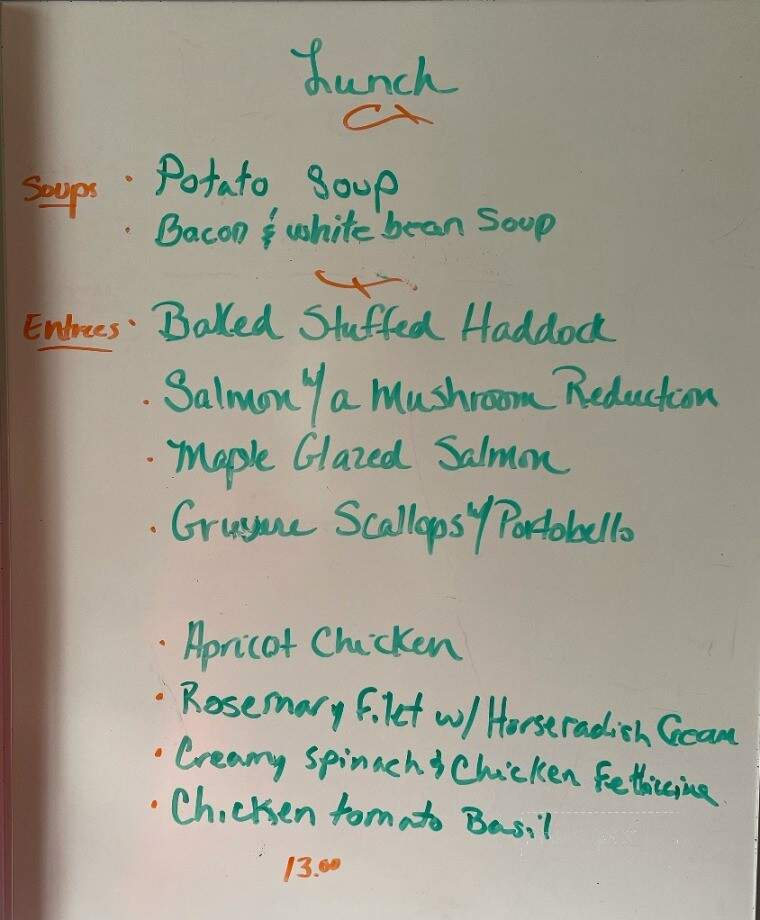 Lunch
Soups • Potato Soup
• Bacon & white bean Soup
Entrees • Baked Stuffed Haddock
• Salmon w/ a Mushroom Reduction
• Maple Glazed Salmon
• Gruyere Scallops w/ Portobello
• Apricot Chicken
• Rosemary Filet w/ Horseradish Cream
• Creamy Spinach & Chicken Fetticcine
• Chicken tomato Basil
13.00